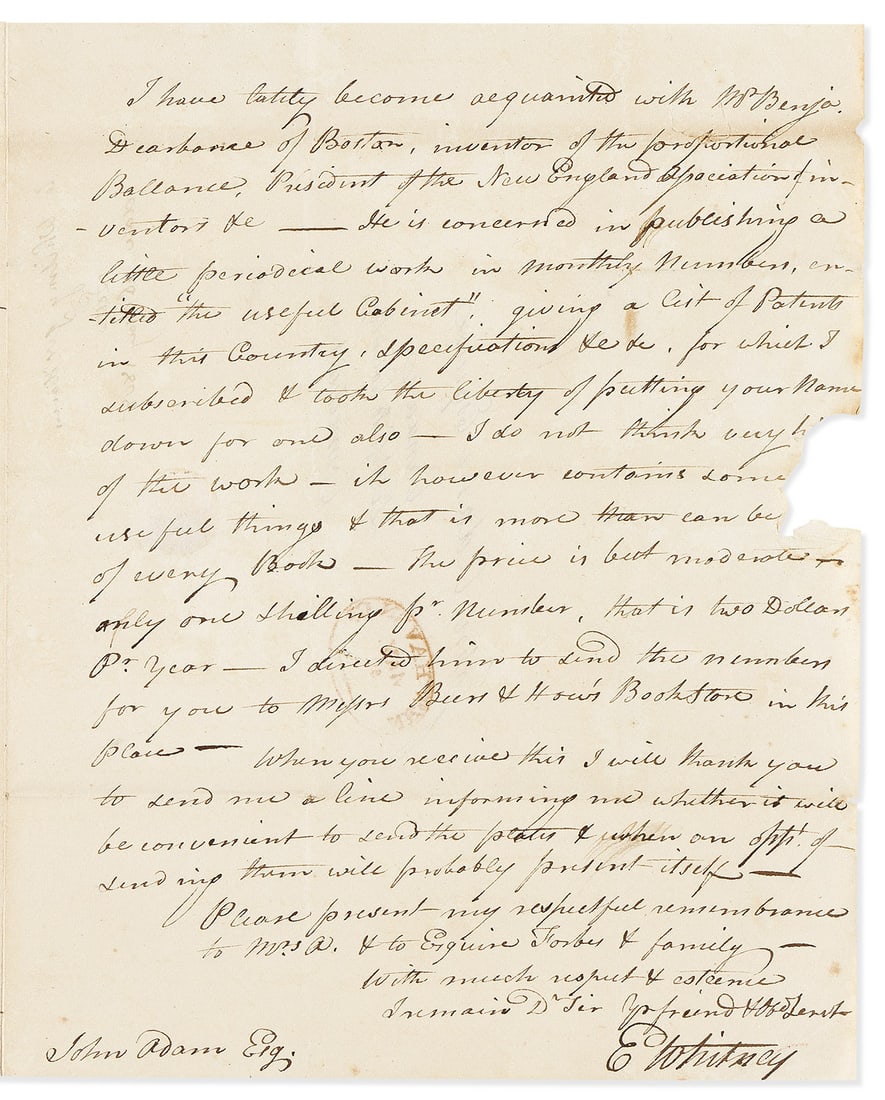 I have lately become acquainted with Mr Benja.
Dearborne of Boston, inventor of the proportional
Ballance, President of the New England Association of in-
-ventors &c — He is concerned in publishing a
little periodical work in monthly Numbers, en-
-titled "the useful Cabinet", giving a list of Patents
in this Country, specifications &c &c, for which I
subscribed & took the liberty of putting your Name
down for one also — I do not think very hi
of the work — it however contains some
useful things & that is more than can be
of every Book — the price is but moderate —
only one shilling pr. Number, that is two Dollars
Pr. Year — I directed him to send the numbers
for you to Messrs Beers & How's Book Store in this
Place — When you receive this I will thank you
to send me a line informing me whether it will
be convenient to send the plates & when an oppt. of
sending them will probably present itself —
Please present my respectful remembrance
to Mrs A. & to Esquire Forbes & family —
With much respect & esteeme
I remain Dr Sir Yr friend & Obdt Servt
E Whitney
John Adam Esq.